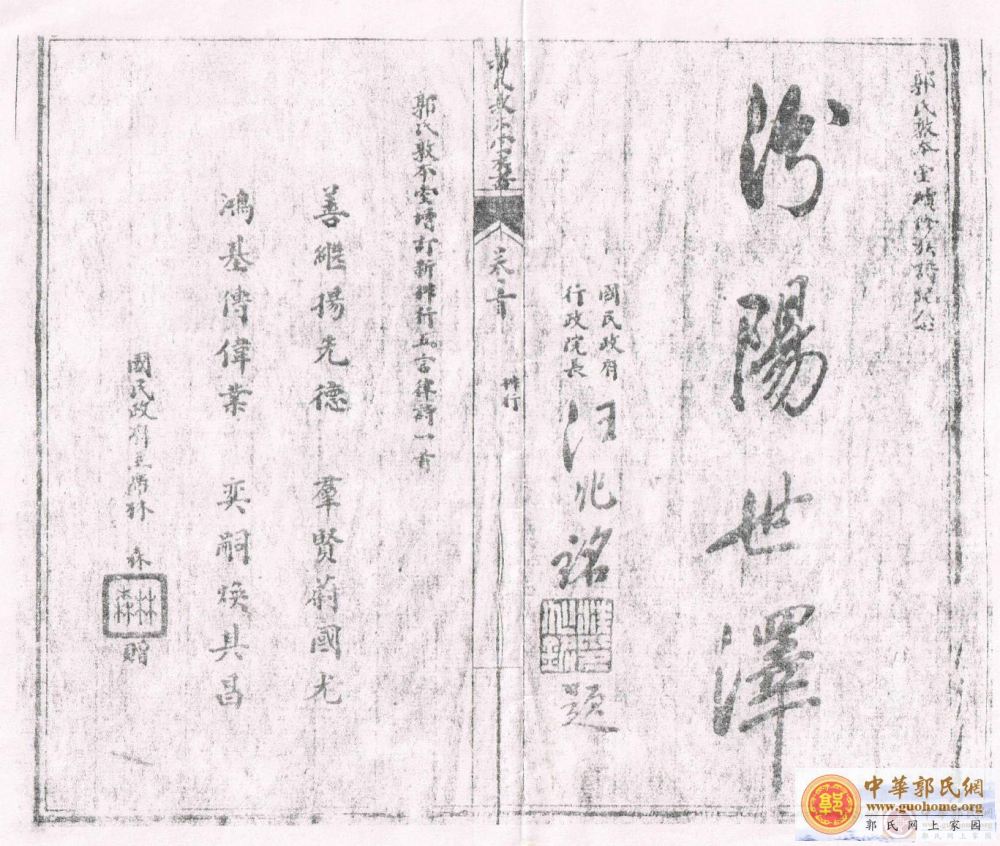 郭氏敦本堂續修族譜紀念
汾陽世澤
國民政府
行政院長
汪兆銘
題
卷首
排行
郭氏敦本堂增訂新排行五言律詩一首
善繼揚先德 羣賢蔚國光
鴻基傳偉業 奕嗣煥其昌
國民政府主席林 森
贈
中華郭氏網
www.guohome.org
郭氏网上家园